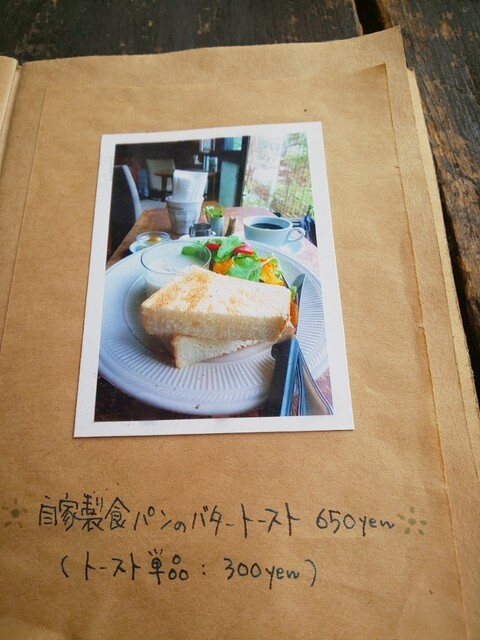 自家製食パンのバタートースト 650yen
(トースト単品：300yen)